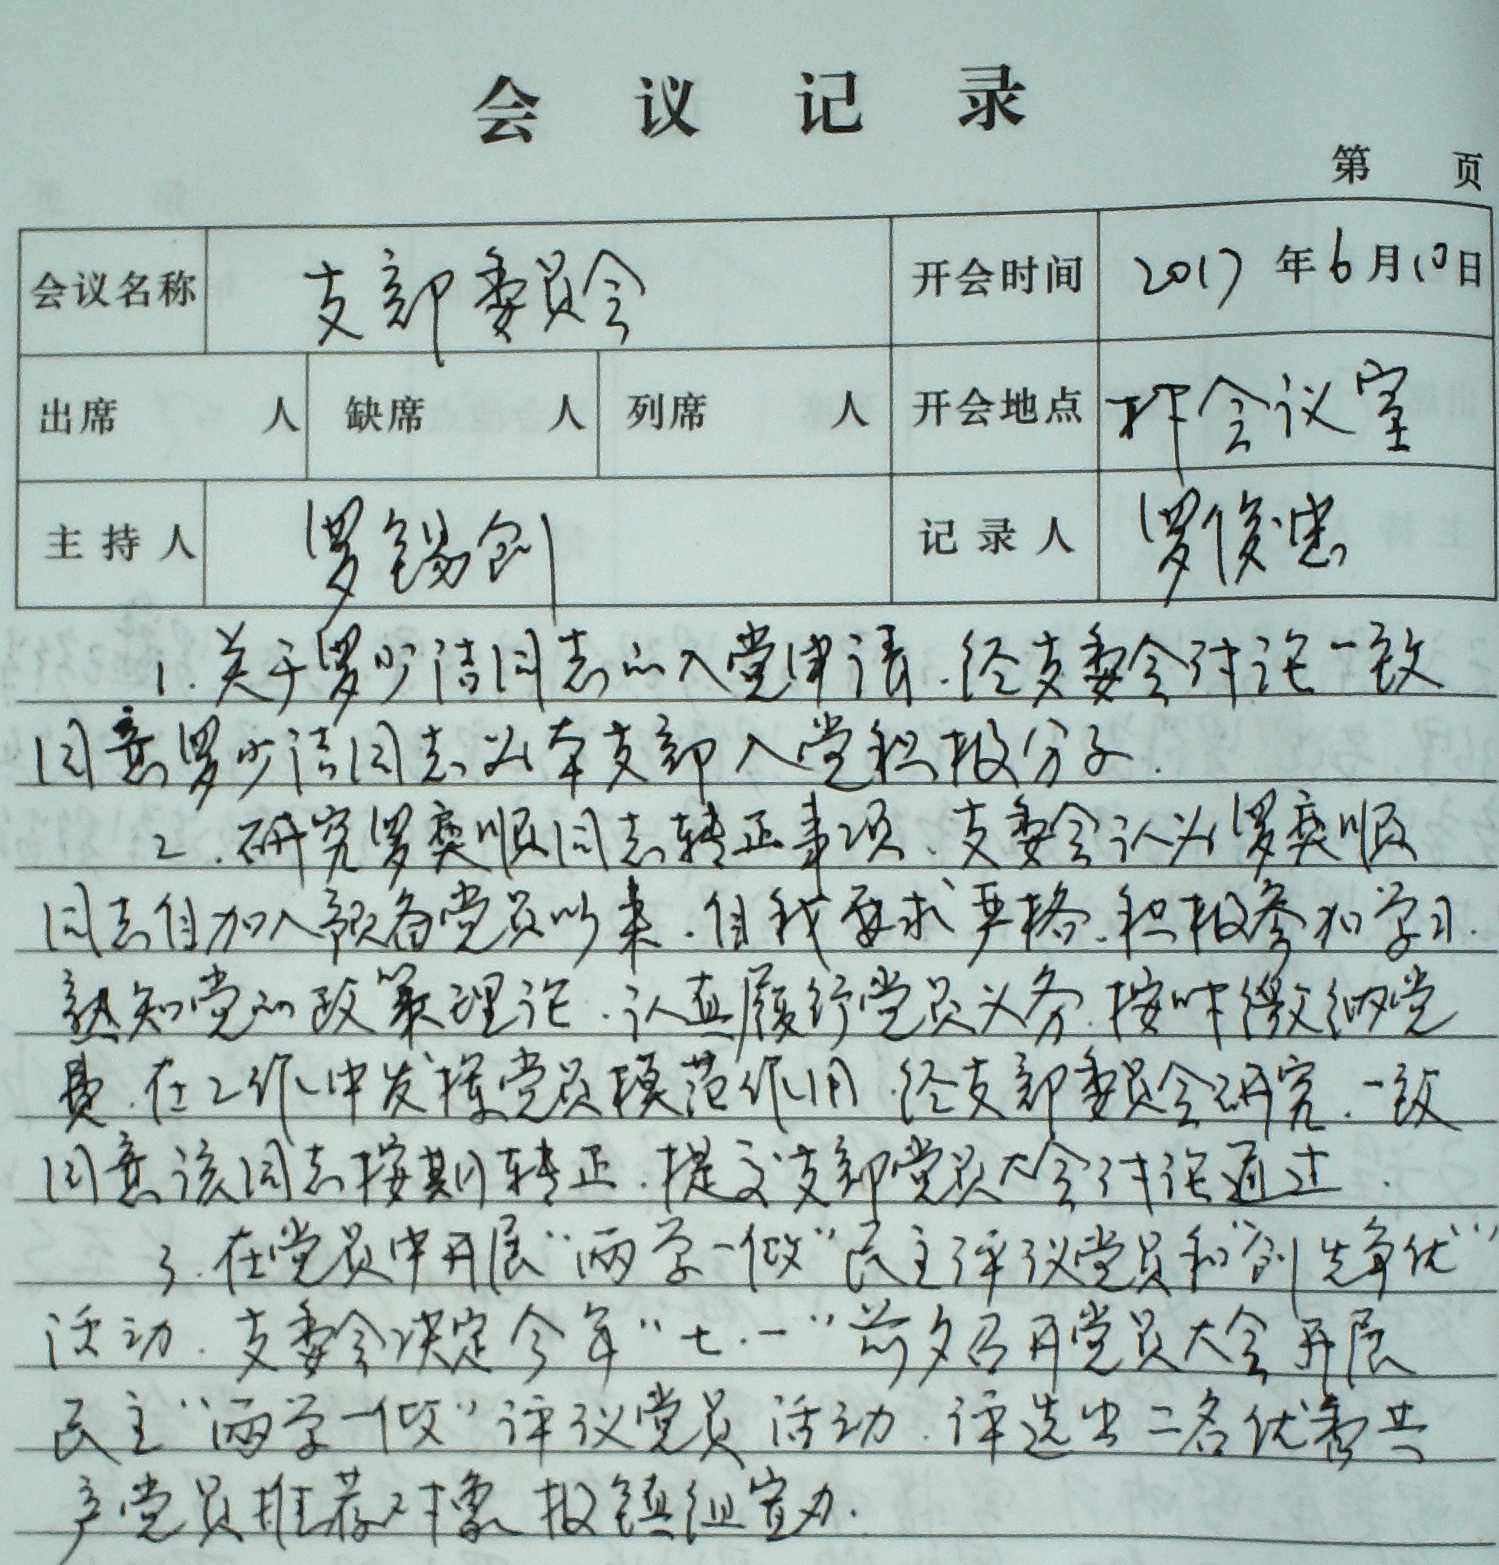 会议记录
第 页
会议名称 支部委员会 开会时间 2017年6月10日
出席 人 缺席 人 列席 人 开会地点 村会议室
主持人 罗锡创 记录人 罗俊忠
1.关于罗少洁同志的入党申请.经支委会讨论一致
同意罗少洁同志为本支部入党积极分子.
2.研究罗奕顺同志转正事项、支委会认为罗奕顺
同志自加入预备党员以来.自我要求严格.积极参加学习.
熟知党的政策理论.认真履行党员义务.按时缴纳党
费.在工作中发挥党员模范作用.经支部委员会研究.一致
同意该同志按期转正.提交支部党员大会讨论通过.
3.在党员中开展"两学一做"民主评议党员和"创先争优"
活动.支委会决定今年"七.一"前夕召开党员大会开展
民主"两学一做"评议党员活动.评选出二名优秀共
产党员推荐对象报镇组宣办.